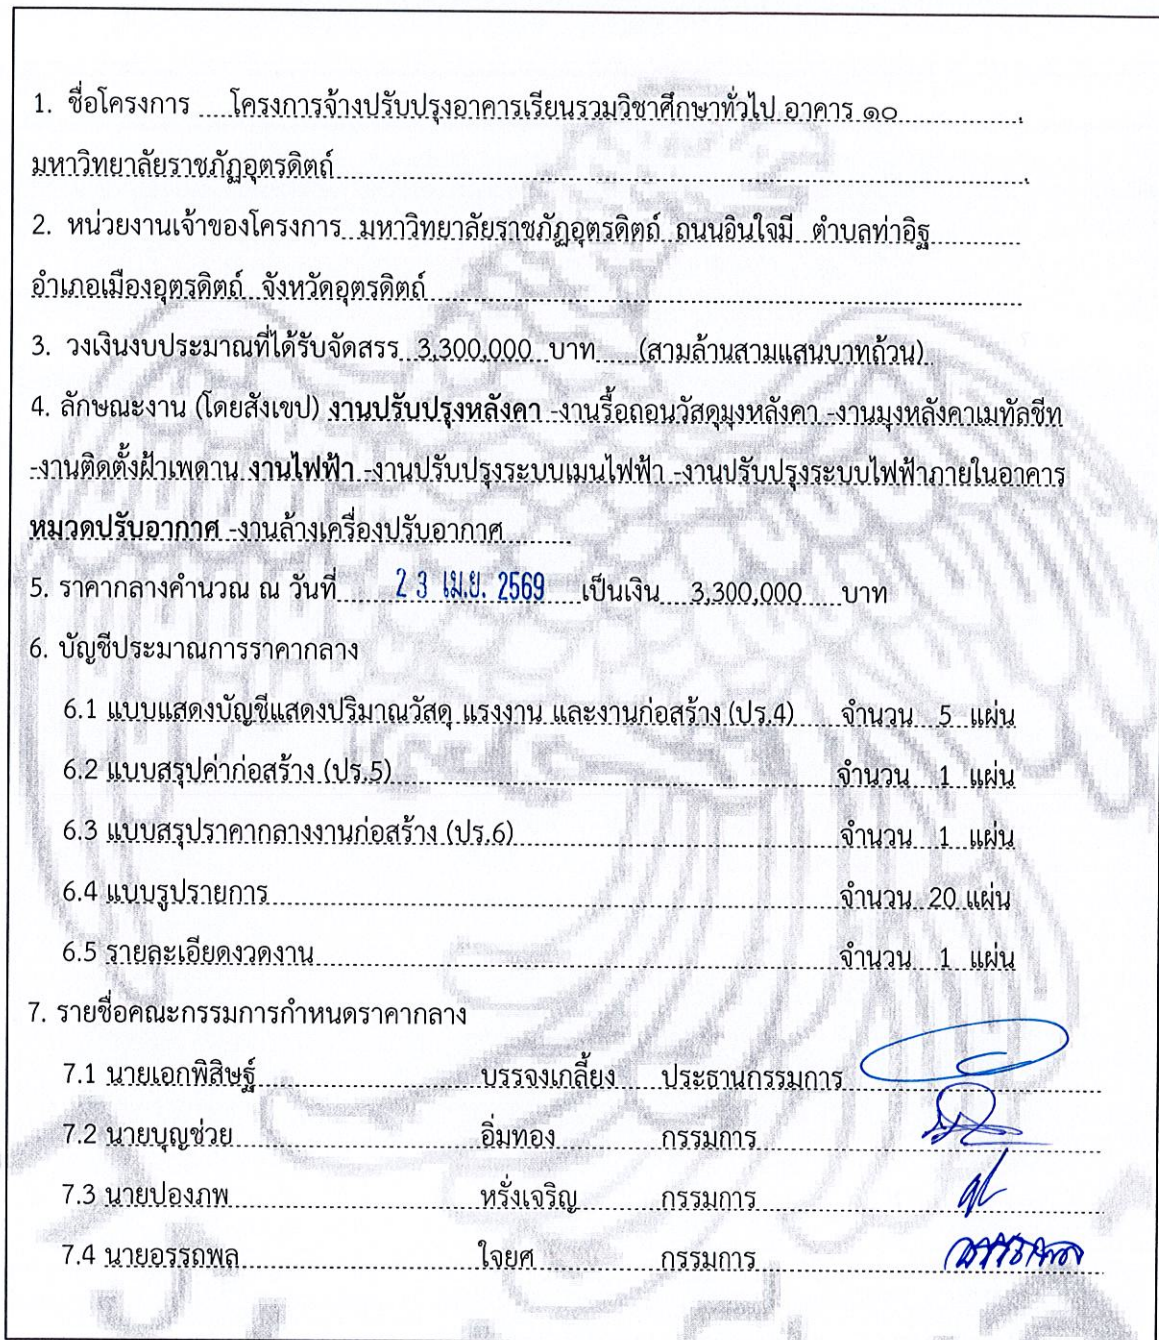 1. ชื่อโครงการ โครงการจ้างปรับปรุงอาคารเรียนรวมวิชาศึกษาทั่วไป อาคาร ๑๐
มหาวิทยาลัยราชภัฏอุตรดิตถ์
2. หน่วยงานเจ้าของโครงการ มหาวิทยาลัยราชภัฏอุตรดิตถ์ ถนนอินใจมี ตำบลท่าอิฐ
อำเภอเมืองอุตรดิตถ์ จังหวัดอุตรดิตถ์
3. วงเงินงบประมาณที่ได้รับจัดสรร 3,300,000 บาท (สามล้านสามแสนบาทถ้วน)
4. ลักษณะงาน (โดยสังเขป) งานปรับปรุงหลังคา -งานรื้อถอนวัสดุมุงหลังคา -งานมุงหลังคาเมทัลชีท
-งานติดตั้งฝ้าเพดาน งานไฟฟ้า -งานปรับปรุงระบบเมนไฟฟ้า -งานปรับปรุงระบบไฟฟ้าภายในอาคาร
หมวดปรับอากาศ -งานล้างเครื่องปรับอากาศ
5. ราคากลางคำนวณ ณ วันที่ 23 เม.ย. 2569 เป็นเงิน 3,300,000 บาท
6. บัญชีประมาณการราคากลาง
6.1 แบบแสดงบัญชีแสดงปริมาณวัสดุ แรงงาน และงานก่อสร้าง (ปร.4) จำนวน 5 แผ่น
6.2 แบบสรุปค่าก่อสร้าง (ปร.5) จำนวน 1 แผ่น
6.3 แบบสรุปราคากลางงานก่อสร้าง (ปร.6) จำนวน 1 แผ่น
6.4 แบบรูปรายการ จำนวน 20 แผ่น
6.5 รายละเอียดงวดงาน จำนวน 1 แผ่น
7. รายชื่อคณะกรรมการกำหนดราคากลาง
7.1 นายเอกพิสิษฐ์ บรรจงเกลี้ยง ประธานกรรมการ
7.2 นายบุญช่วย อิ่มทอง กรรมการ
7.3 นายปองภพ หรั่งเจริญ กรรมการ
7.4 นายอรรถพล ใจยศ กรรมการ